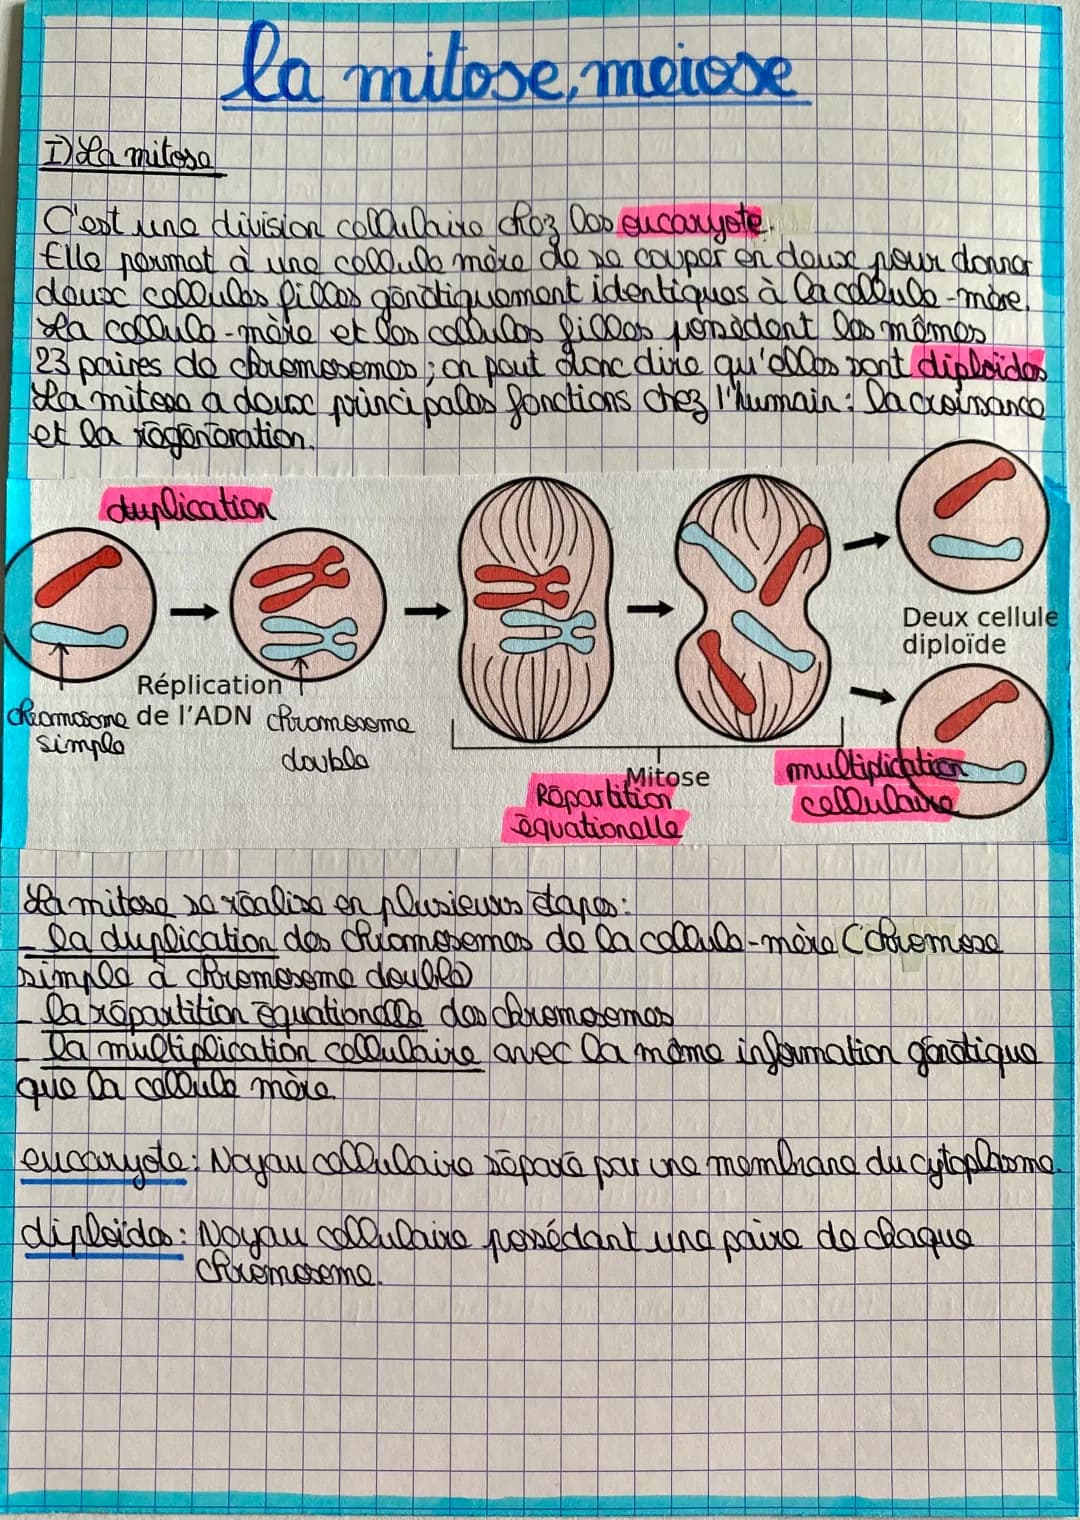 la mitose, meiose
I) La mitose
C'est une division cellulaire chez les eucaryote.
Elle permet à une cellule mère de se couper en deux pour donner
deux cellules filles génétiquement identiques à la cellule-mère.
La cellule-mère et les cellules filles possèdent les mêmes
23 paires de chromosomes ; on peut donc dire qu'elles sont diploïdes
La mitose a deux principales fonctions chez l'humain : la croissance
et la régénération.
duplication
Deux cellule
diploïde
Réplication
de l'ADN
chromosome
simple
chromosome
double
Mitose
Répartition
équationelle
multiplication
cellulaire
La mitose se réalise en plusieurs étapes :
- la duplication des chromosomes de la cellule-mère (chromose
simple à chromosome double)
- la répartition équationelle des chromosomes
- la multiplication cellulaire avec la même information génétique
que la cellule mère.
eucaryote : Noyau cellulaire séparé par une membrane du cytoplasme.
diploïdes : Noyau cellulaire possédant une paire de chaque
chromosome.